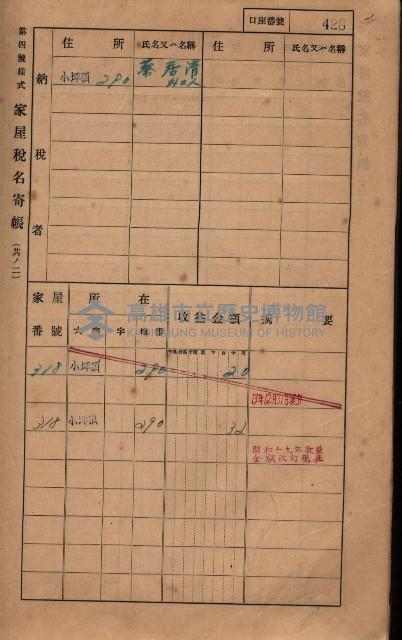 口座番號 428
第四號樣式 家屋稅名寄帳 (其ノ二)
納稅者
住所 氏名又ハ名稱 住所 氏名又ハ名稱
小坪頂 290 葉居清
外2人
家屋番號 所在 收益金額 摘要
大字 字 地番
318 小坪頂 290 20
318 小坪頂 290 32
昭和十九年收益
金額改訂
高雄市立歷史博物館
KAOHSIUNG MUSEUM OF HISTORY